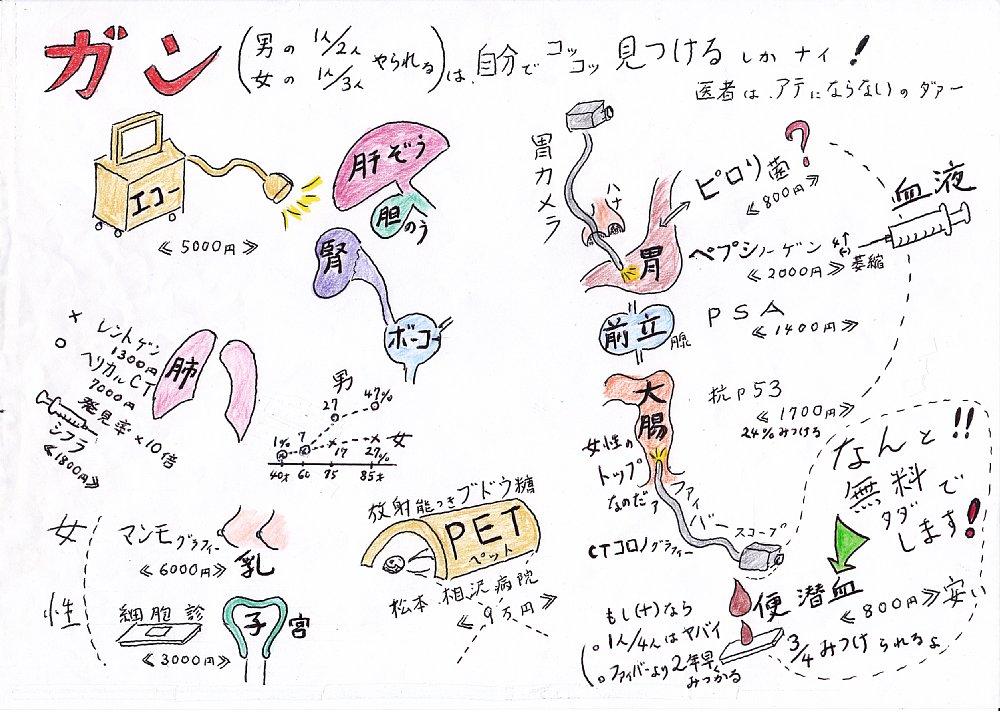 ガン(男の 1人/2人 女の 1人/3人 やられる)は、自分で コッコッ 見つける しか ナイ!
医者は、アテにならないの ダァー
エコー
≪5000円≫
肝ぞう
胆のう
腎
ボーコー
胃カメラ
ハナ
胃
ピロリ菌?
≪800円≫
血液
ペプシノーゲン
≪2000円≫
萎縮
前立腺
PSA
≪1400円≫
× レントゲン
1300円
○ ヘリカルCT
7000円
発見率×10倍
シフラ
≪1800円≫
肺
男
27 47%
1% 7 17 27% 女
40才 60 75 85才
大腸
抗p53
≪1700円≫
24%みつける
女性の
トップ
なのだァ
ファイバー
スコープ
CTコロノグラフィー
なんと!!
無料で
タダ
します!
便潜血
≪800円≫安い
3/4みつけられるよ
もし(+)なら
○1人/4人はヤバイ
○ファイバーより2年早く
みつかる
女性
マンモグラフィー
≪6000円≫
乳
細胞診
≪3000円≫
子宮
放射能つきブドウ糖
PET
ペット
松本 相沢病院
≪9万円≫